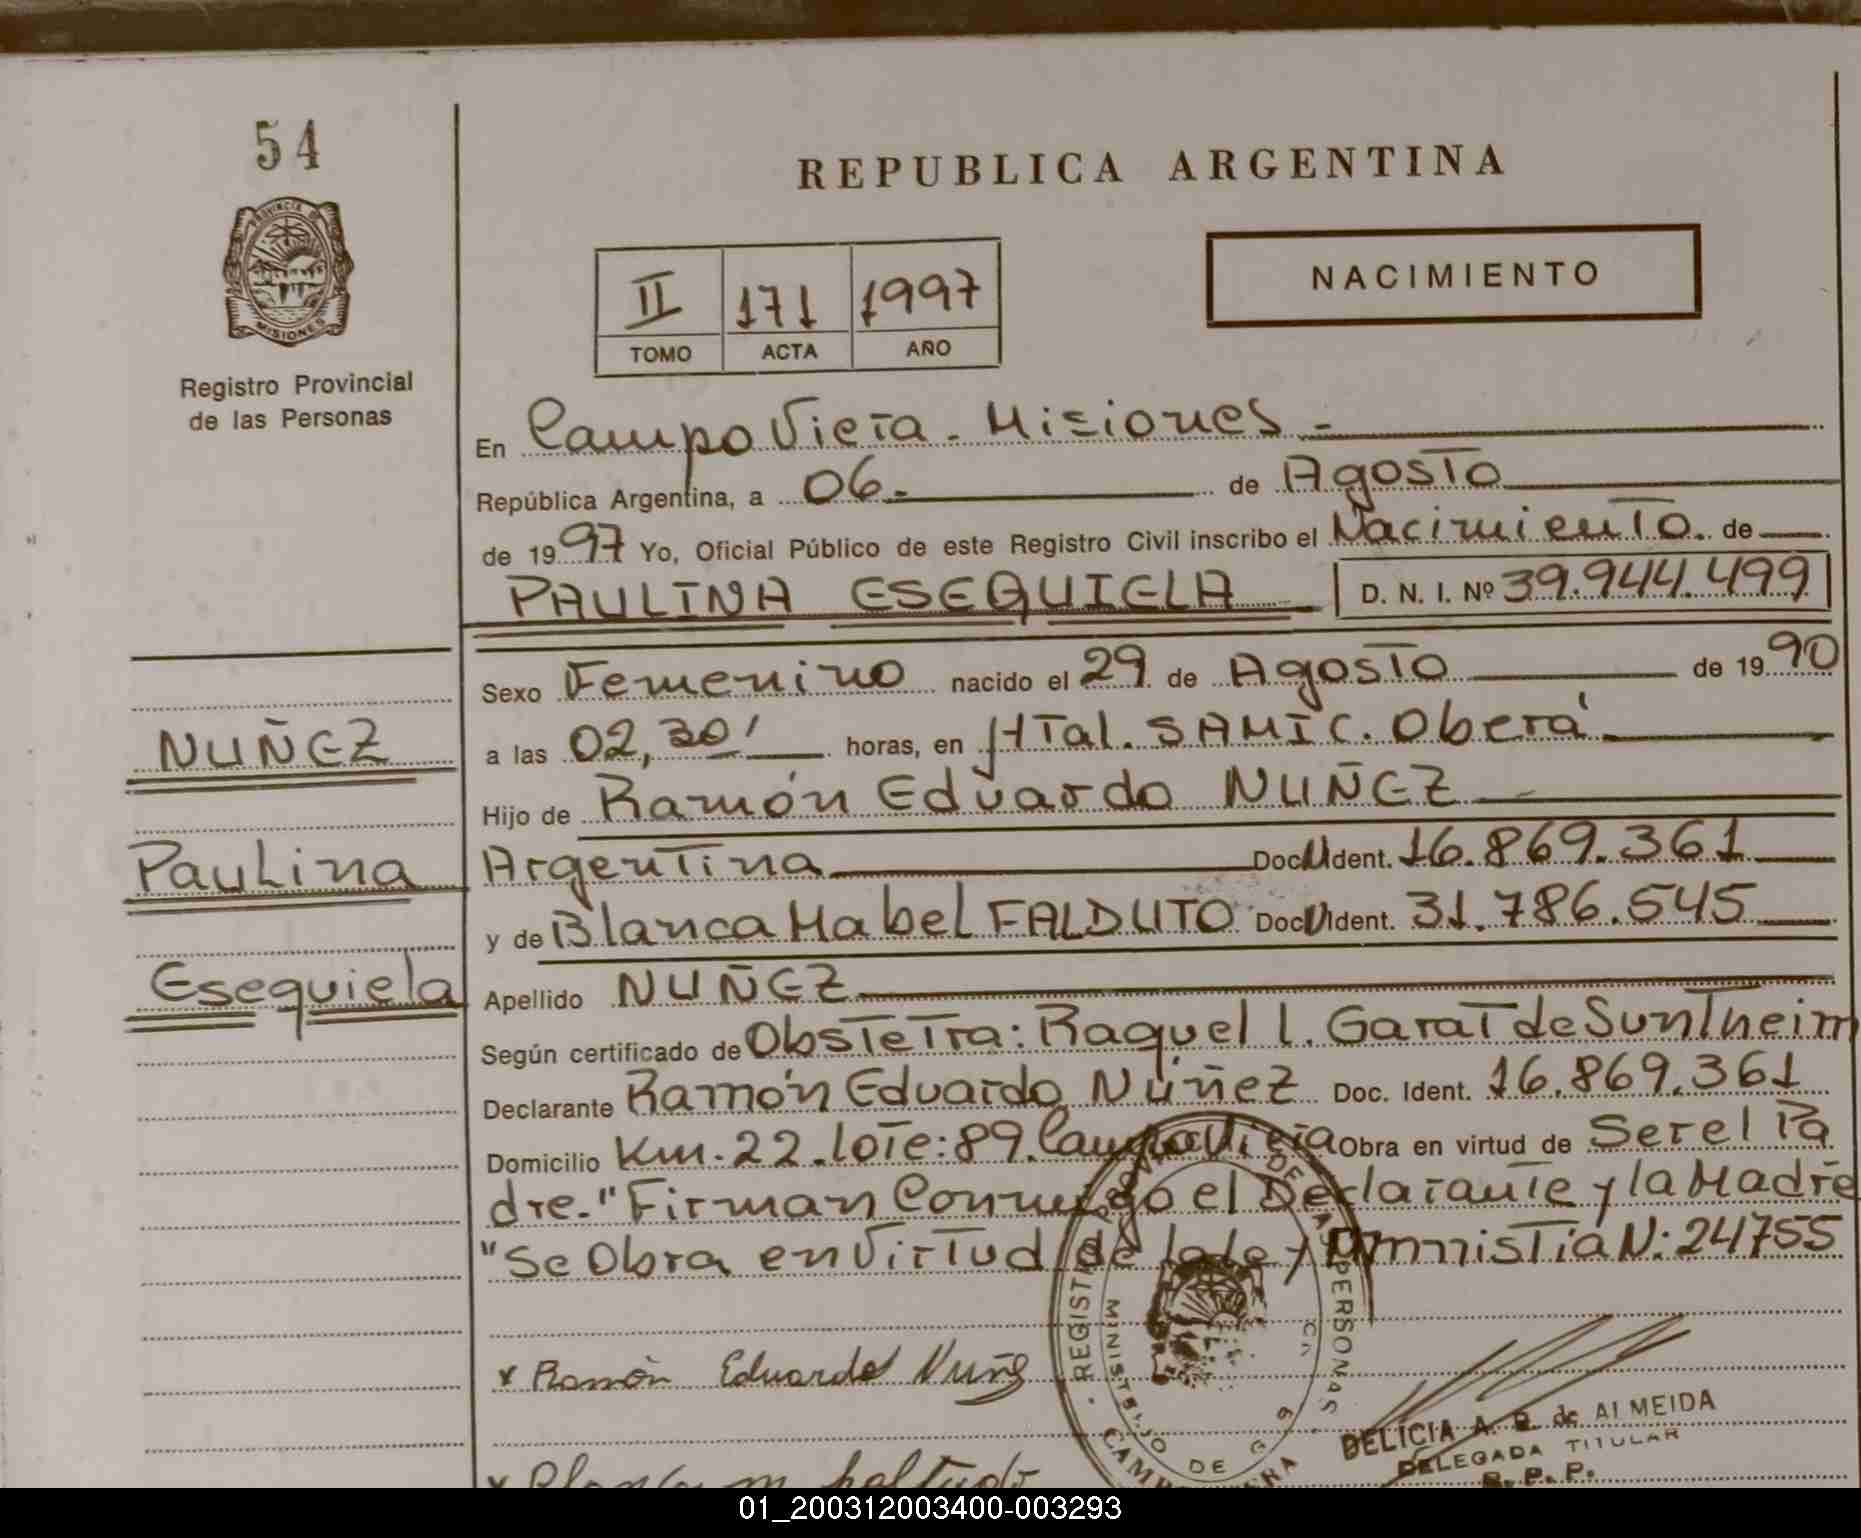 54
PROVINCIA DE
MISIONES
Registro Provincial
de las Personas
REPUBLICA ARGENTINA
II 171 1997
TOMO ACTA AÑO
NACIMIENTO
En Campo Viera - Misiones.-
República Argentina, a 06.- de Agosto
de 1997 Yo, Oficial Público de este Registro Civil inscribo el Nacimiento. de
PAULINA ESEQUIELA D. N. I. Nº 39.944.499
Sexo Femenino nacido el 29 de Agosto de 1990
a las 02,30' horas, en HTal. SAMIC. Oberá
Hijo de Ramón Eduardo NUÑEZ
Argentina Doc. Ident. 16.869.361
y de Blanca Mabel FALDUTO Doc. Ident. 31.786.545
Apellido NUÑEZ
Según certificado de Obstetra: Raquel l. Garat de Suntheim
Declarante Ramón Eduardo Núñez Doc. Ident. 16.869.361
Domicilio Km. 22. lote: 89. Campo Viera Obra en virtud de Ser el Pa
dre." Firman Conmigo el Declarante y la Madre
"Se Obra en Virtud de la ley Ammistia N: 24755
NUÑEZ
Paulina
Esequiela
x Ramón Eduardo Nuñez
x Blanca m faltudo
REGISTRO DE LAS PERSONAS
MINISTERIO DE
CAMPO VIERA
DELICIA A. B. de ALMEIDA
DELEGADA TITULAR
R. P. P.
01_200312003400-003293